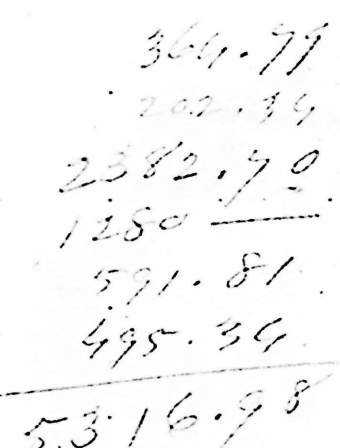 364.79
202.34
2382.70
1280 —
591.81
495.34
5316.98